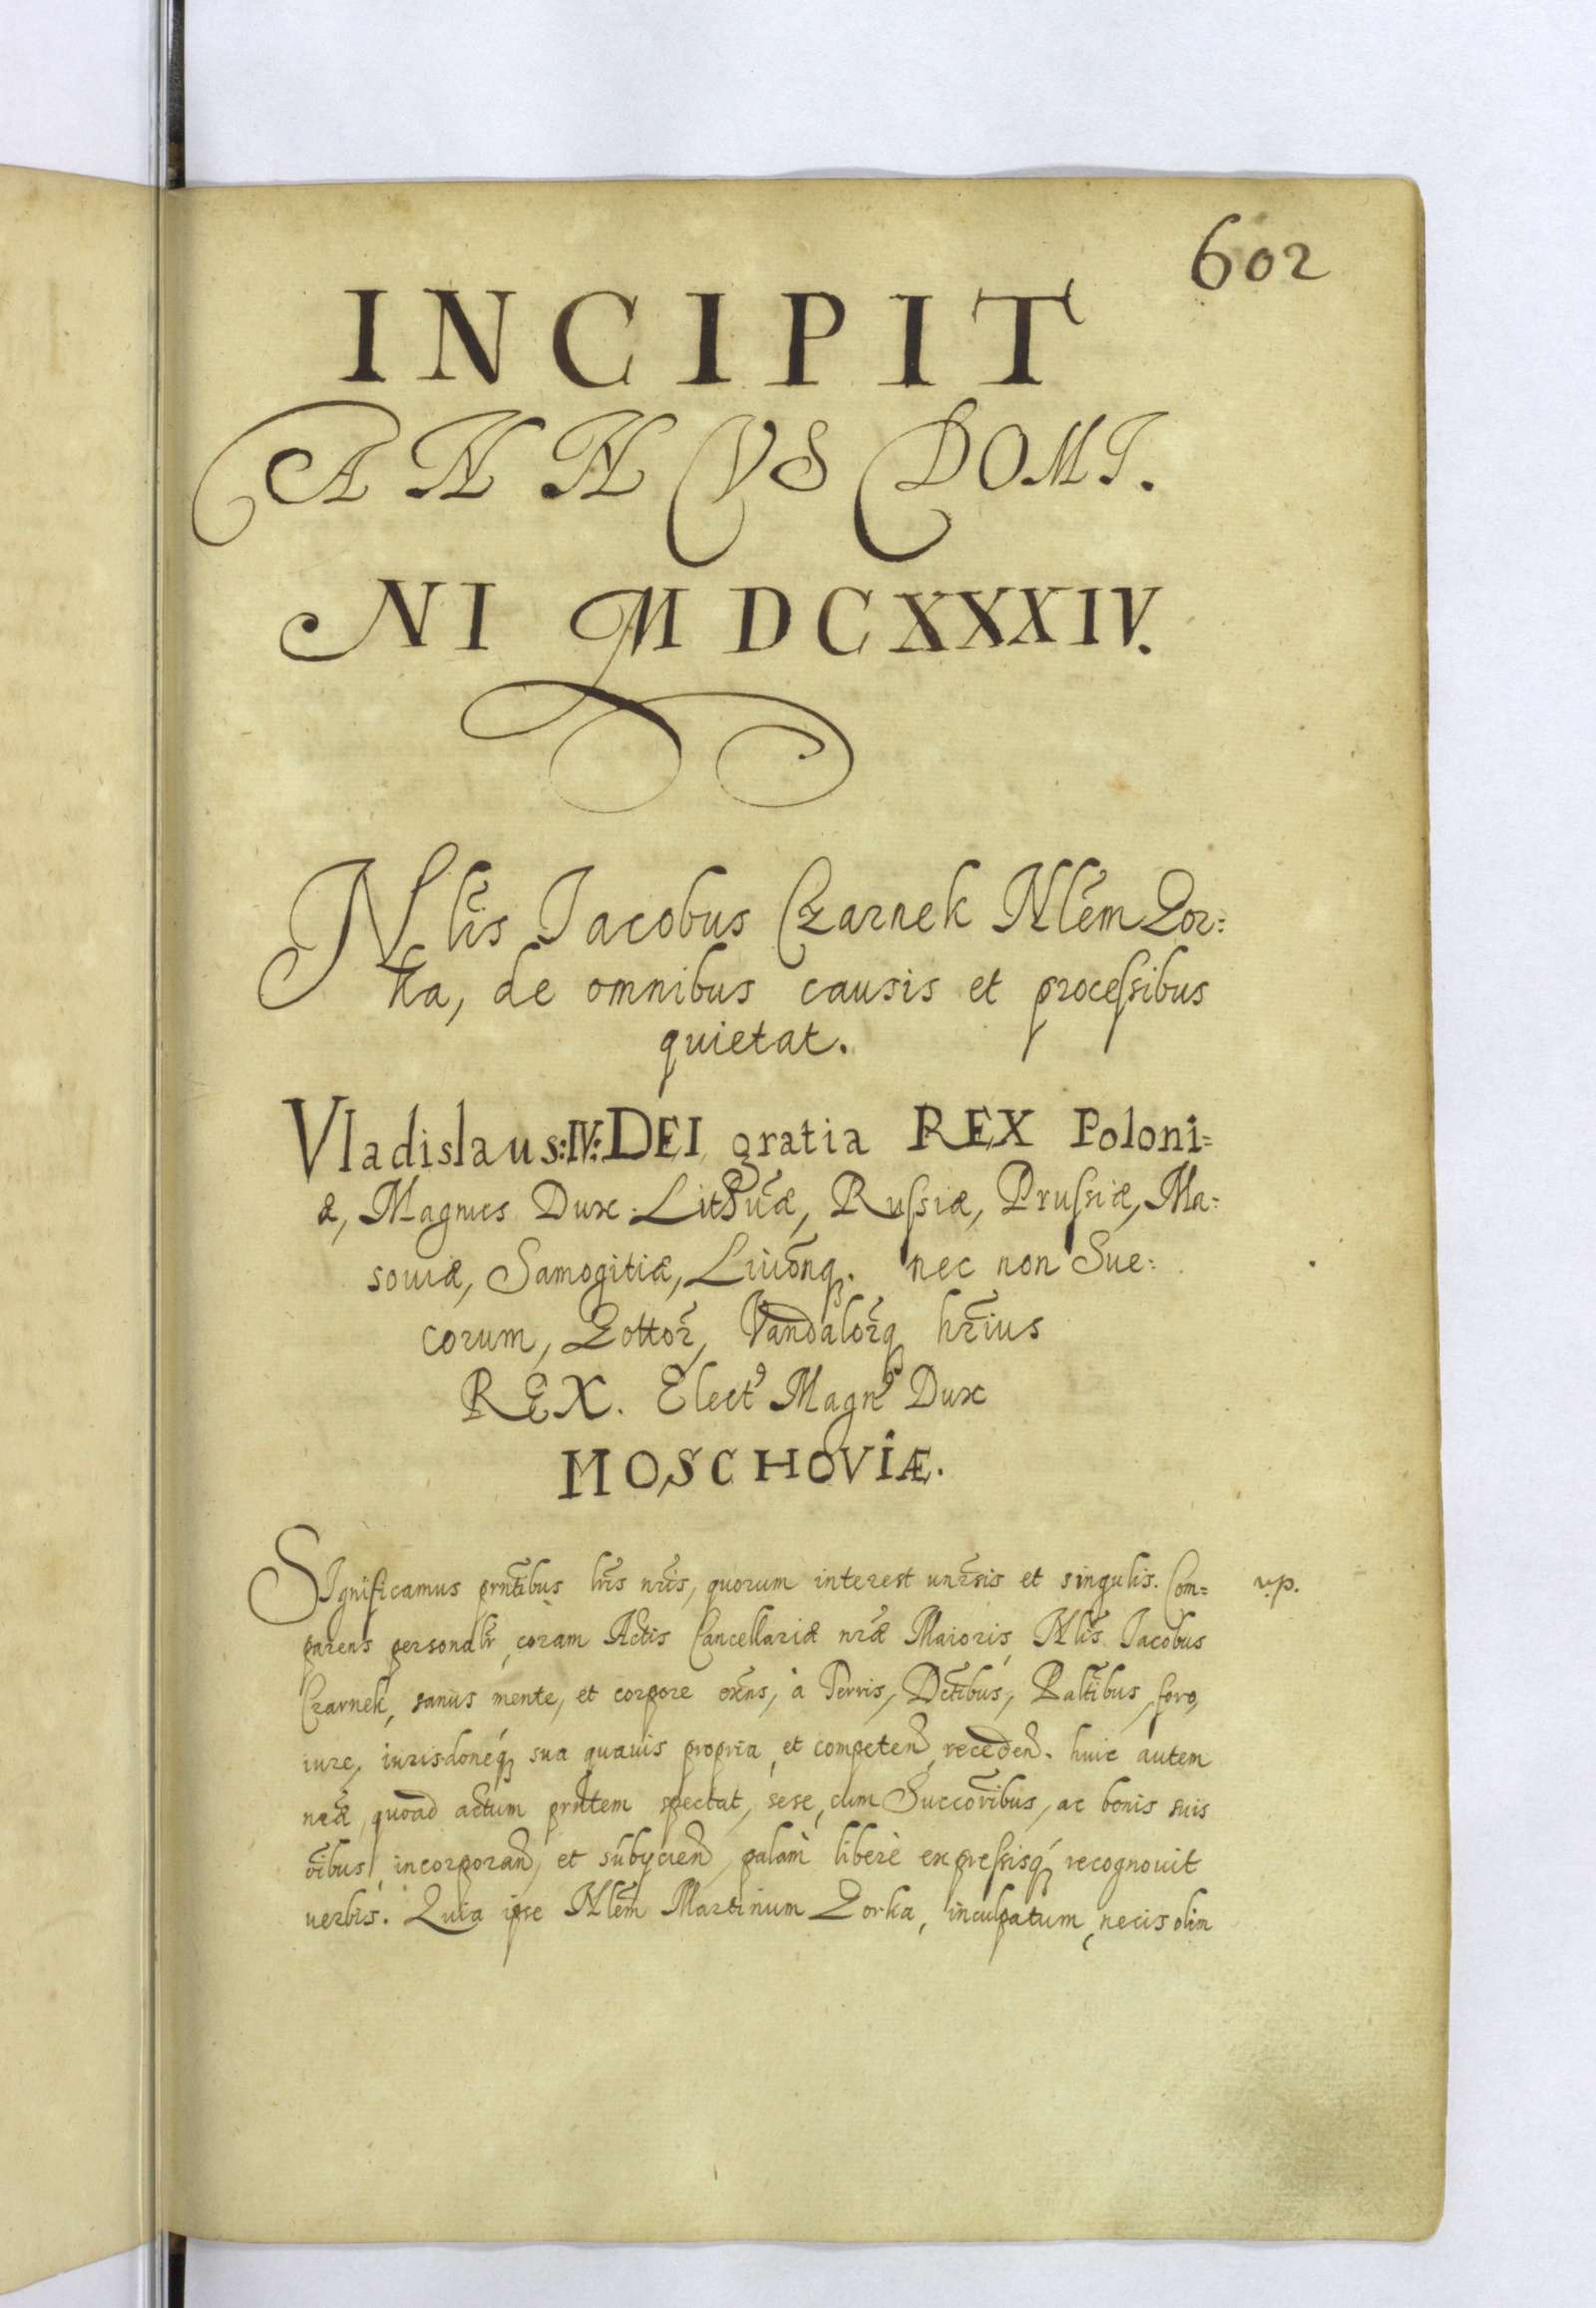 602
INCIPIT
ANNVS DOMI.
NI MDCXXXIV.
Nlis Jacobus Czarnek Nlem Gor=
ka, de omnibus causis et processibus
quietat.
Vladislaus:IV: DEI gratia REX Poloni=
æ, Magnus Dux Lithuæ, Russiæ, Prussiæ, Ma=
souiæ, Samogitiæ, Liuonq. nec non Sue=
corum, Gottor, Vandalorq hrius
REX. Elect9 Magn9 Dux
MOSCHOVIÆ.
Significamus prntibus lris nris, quorum interest unrsis et singulis. Com=
v.p.
parens personalr, coram Actis Cancellariæ nræ Maioris, Nlis Jacobus
Czarnek, sanus mente, et corpore exens, à Terris, Dctibus, Paltibus, foro,
iure, iurisdoneq sua quauis propria, et competen, receden. huic autem
nræ, quoad actum prntem spectat, sese, cum Succoribus, ac bonis suis
oibus, incorporan, et subycien, palàm liberè expressisq recognouit
uerbis. Quia ipse Nlem Martinum Gorka, inculpatum, necis olim